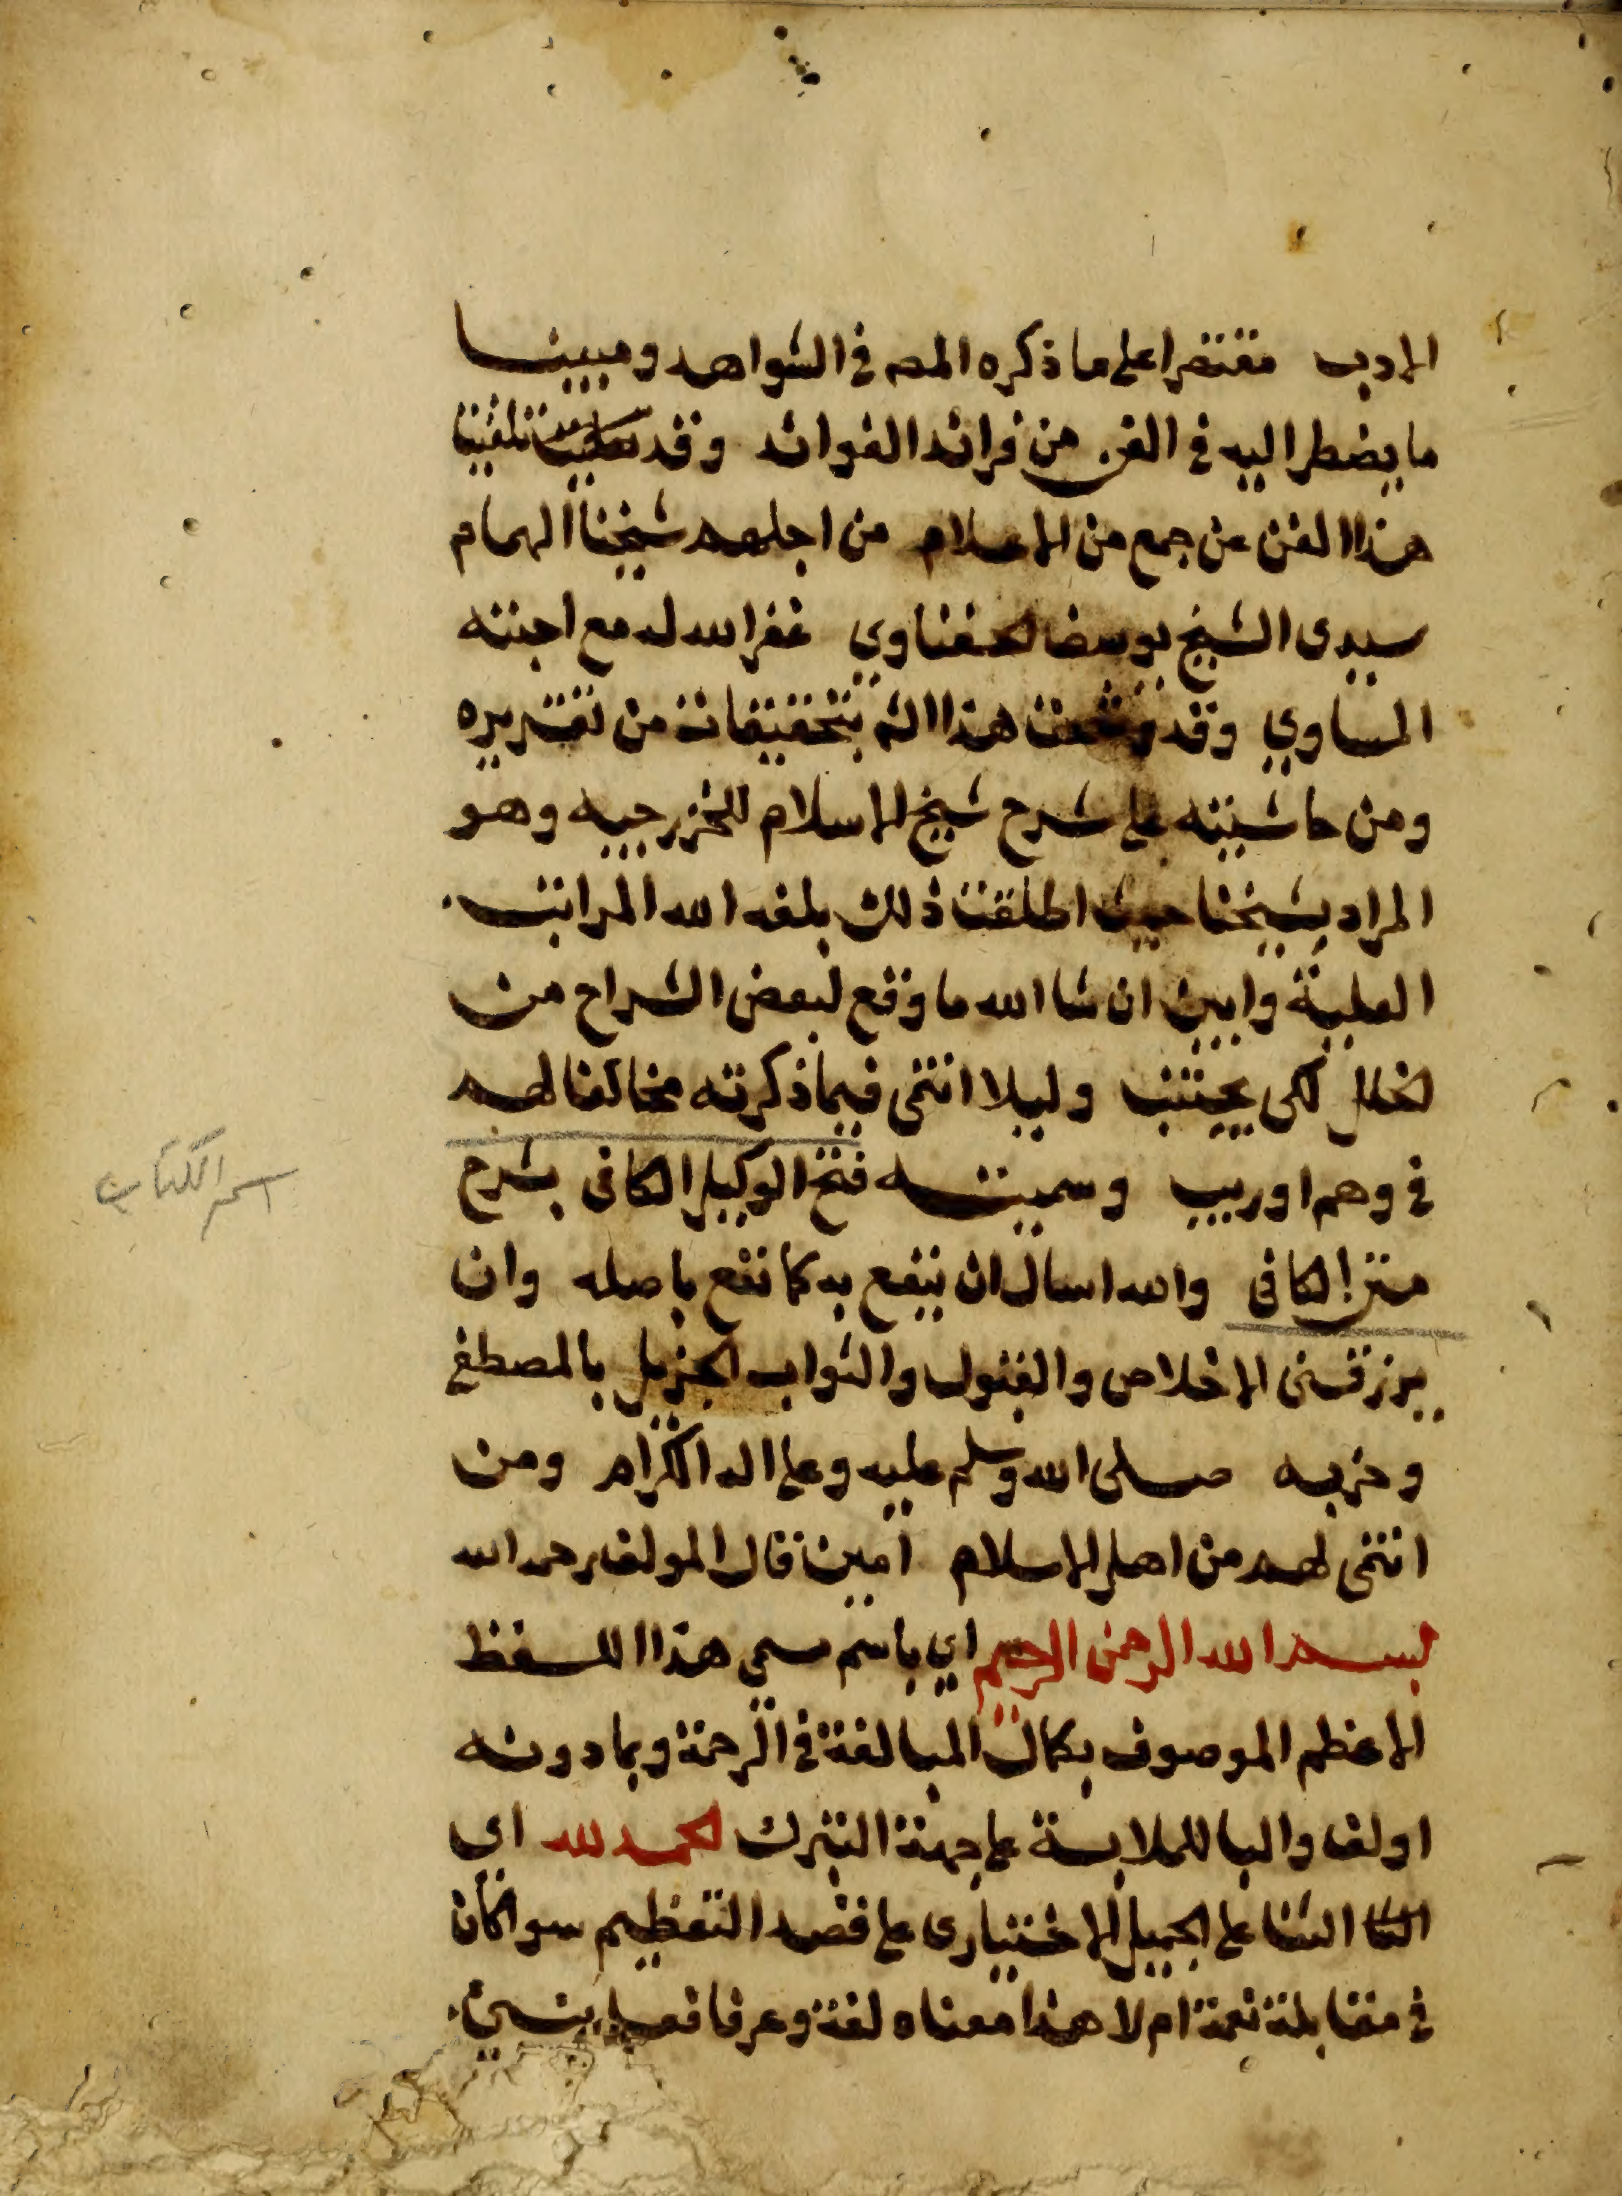 الادب مقتصرا على ما ذكره المصـ في الشواهد ومبينا
ما يضطر اليه في الفن من فرائد الفوائد وقد تلقيت
هذا الفن عن جمع من الاعلام من اجلهم شيخنا الهمام
سيدى الشيخ يوسف الحفناوي غفر الله له مع احبته
المساوي وقد وشحت هذا الشـ بتحقيقات من تقريره
ومن حاشيته على شرح شيخ الاسلام للخزرجيه وهو
المراد بشيخنا حيث اطلقت ذلك بلغه الله المراتب
العلية وابين ان شا الله ما وقع لبعض الشراح من
الخلل لكى يجتنب وليلا انتمى فيما ذكرته مخالفا لهم
اسم الكتاب
في وهم او ريب وسميته فتح الوكيل الكافى بشرح
متن الكافى والله اسال ان ينفع به كما نفع باصله وان
يرزقنى الاخلاص والقبول والثواب الجزيل بالمصطفى
وحزبه صلى الله وسلم عليه وعلى اله الكرام ومن
انتمى لهم من اهل الاسلام امين قال المولف رحمه الله
بسم الله الرحمن الرحيم اي باسم مسمى هذا اللفظ
الاعظم الموصوف بكمال المبالغة في الرحمة وبما دونه
اولف والبا للملابسة على جهة التبرك الحمد لله اي
الثنا على الجميل الاختيارى على قصد التعظيم سوا كان
في مقابلة نعمة ام لا هذا معناه لغة وعرفا فعل ينبئ